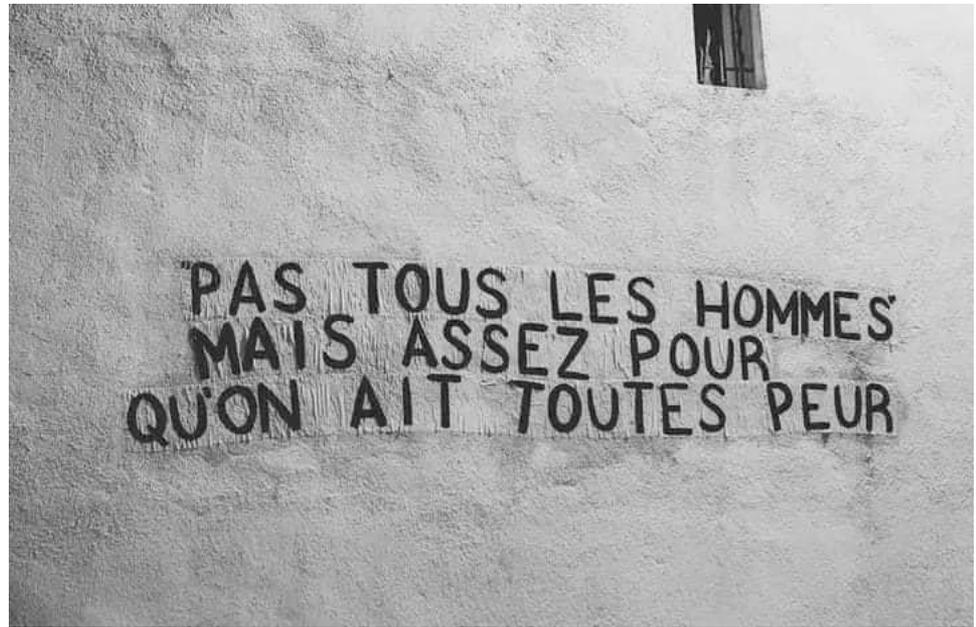 "PAS TOUS LES HOMMES"
MAIS ASSEZ POUR
QU'ON AIT TOUTES PEUR